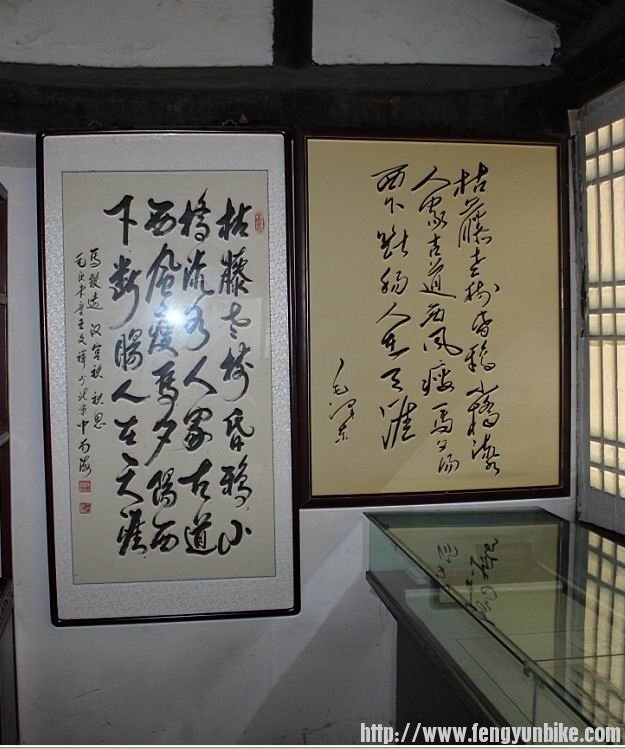 枯藤老树昏鸦小
橋流水人家古道
西風瘦馬夕陽西
下断腸人在天涯
馬致远 汉宫秋 秋思
枯藤老树昏鸦小橋流水
人家古道西风瘦馬夕陽
西下断肠人在天涯
毛泽东
http://www.fengyunbike.com